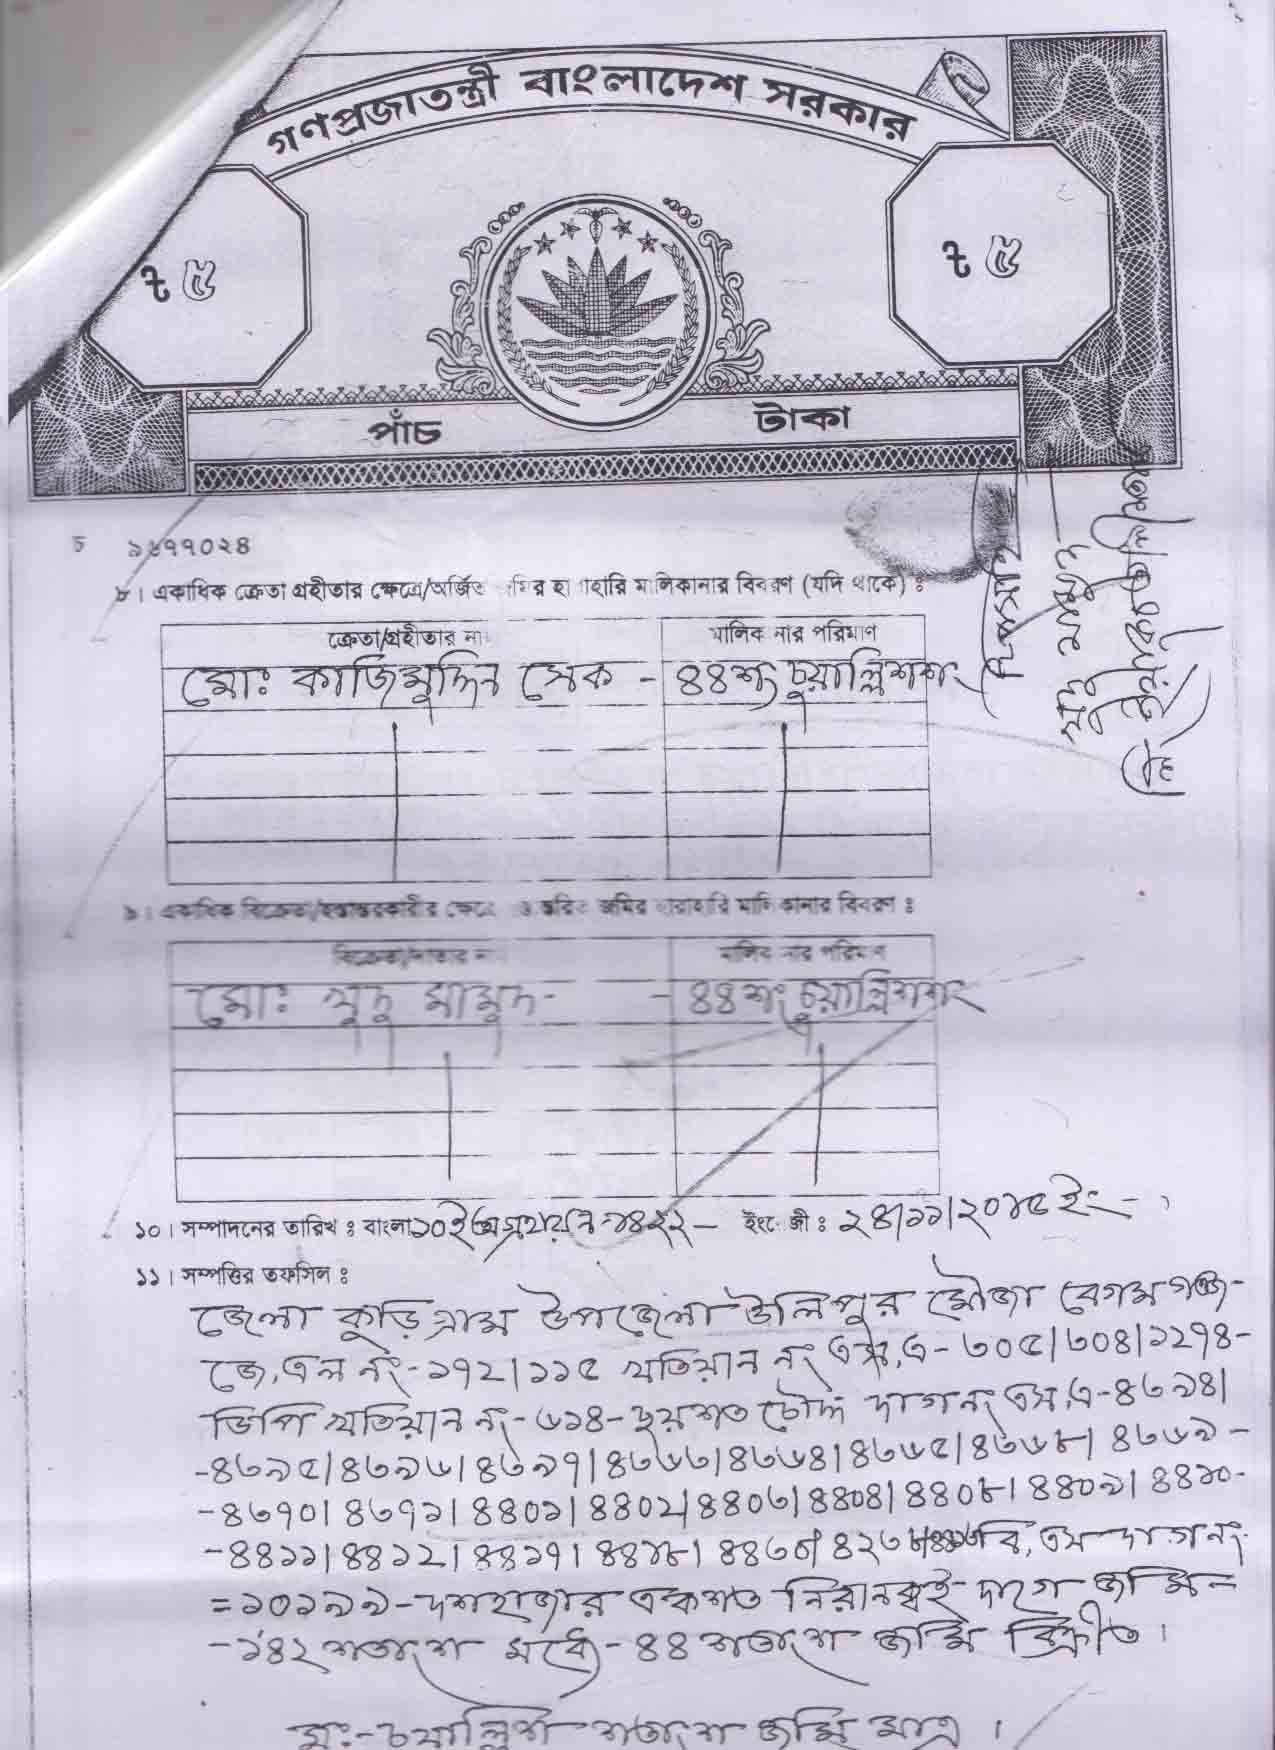 গণপ্রজাতন্ত্রী বাংলাদেশ সরকার
ট ৫
ট ৫
পাঁচ টাকা
চ ১৬৭৭০২৪
৮। একাধিক ক্রেতা গ্রহীতার ক্ষেত্রে/অর্জিত জমির হারাহারি মালিকানার বিবরণ (যদি থাকে) :
ক্রেতা/গ্রহীতার না মালিকানার পরিমাণ
মোঃ কাজিমুদ্দিন সেক - ৪৪শত চুয়াল্লিশশত
৯। একাধিক বিক্রেতা/হস্তান্তরকারীর ক্ষেত্রে হস্তান্তরিত জমির হারাহারি মালিকানার বিবরণ :
বিক্রেতা/দাতার না মালিকানার পরিমাণ
মোঃ মামুদ - - ৪৪শং চুয়াল্লিশশং
১০। সম্পাদনের তারিখ : বাংলা ১০ই অগ্রহায়ন-১৪২২ - ইংরেজী : ২৪/১১/২০১৫ ইং -
১১। সম্পত্তির তফসিল :
জেলা কুড়িগ্রাম উপজেলা উলিপুর মৌজা বেগমগঞ্জ-
জে,এল নং-১৭২/১১৫ খতিয়ান নং এস,এ- ৩০৫/৩০৪/১২৭৪-
ডিপি খতিয়ান নং- ৬১৪- ছয়শত চৌদ্দ দাগ নং এস,এ-৪৩৯৪/
-৪৩৯৫/৪৩৯৬/৪৩৯৭/৪৩৬৩/৪৩৬৪/৪৩৬৫/৪৩৬৮/ ৪৩৬৯-
-৪৩৭০/৪৩৭১/৪৪০১/৪৪০২/৪৪০৩/৪৪০৪/৪৪০৮/৪৪০৯/৪৪১০-
-৪৪১১/৪৪১২/৪৪১৭/৪৪১৮/৪৪৩০/ বি,এস দাগ নং-
=১০১৯৯- দশহাজার একশত নিরানব্বই দাগে জমি-
-১৪২ শতাংশ মধ্যে- ৪৪ শতাংশ জমি বিক্রীত।
মং- চুয়াল্লিশ শতাংশ জমি মাত্র।